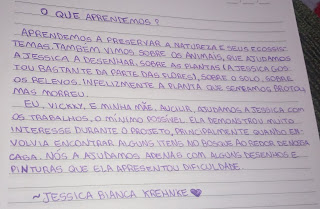 O QUE APRENDEMOS?
APRENDEMOS A PRESERVAR A NATUREZA E SEUS ECOSSIS-
TEMAS. TAMBÉM VIMOS SOBRE OS ANIMAIS, QUE AJUDAMOS
A JESSICA A DESENHAR, SOBRE AS PLANTAS (A JESSICA GOS-
TOU BASTANTE DA PARTE DAS FLORES), SOBRE O SOLO, SOBRE
OS RELEVOS. INFELIZMENTE A PLANTA QUE SEMEAMOS BROTOU
MAS MORREU.
EU, VICKLY, E MINHA MÃE, AUCIUR, AJUDAMOS A JESSICA COM
OS TRABALHOS, O MÍNIMO POSSÍVEL. ELA DEMONSTROU MUITO
INTERESSE DURANTE O PROJETO, PRINCIPALMENTE QUANDO EN-
VOLVIA ENCONTRAR ALGUNS ITENS NO BOSQUE AO REDOR DE NOSSA
CASA. NÓS A AJUDAMOS APENAS COM ALGUNS DESENHOS E
PINTURAS QUE ELA APRESENTOU DIFICULDADE.
~JESSICA BIANCA KREHNKE